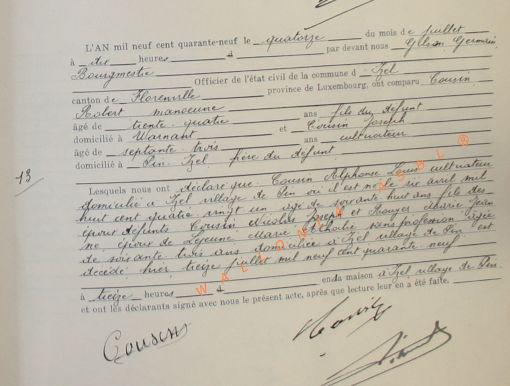 L'AN mil neuf cent quarante-neuf le quatorze du mois de juillet
à dix heures par devant nous Gilson Germain
Bourgmestre Officier de l'état civil de la commune d Izel
canton de Florenville province de Luxembourg, ont comparu Cousin
Robert manoeuvre
âgé de trente-quatre ans fils du défunt
domicilié à Warnant et Cousin Joseph
âgé de septante-trois ans cultivateur
domicilié à Pin Izel frère du défunt
13
Lesquels nous ont déclaré que: Cousin Alphonse Louis cultivateur
domicilié à Izel village de Pin où il est né le avril mil
huit cent quatre vingt un âgé de soixante huit ans fils des
époux défunts Cousin Nicolas Joseph et Marie Jean
ne, époux de Lejeune Marie sans profession âgée
de soixante trois ans domiciliée à Izel village de Pin est
décédé hier, treize juillet mil neuf cent quarante neuf
à treize heures en sa maison à Izel village de Pin
et ont les déclarants signé avec nous le présent acte, après que lecture leur en a été faite.
Cousin
WALLONIA ASBL ®